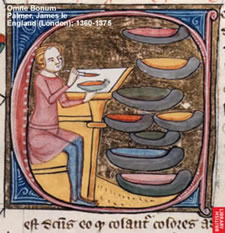 Omne Bonum
Palmer, James le
England (London); 1360-1375
est Ions eo q colant colores a
BRITISH
LIBRARY